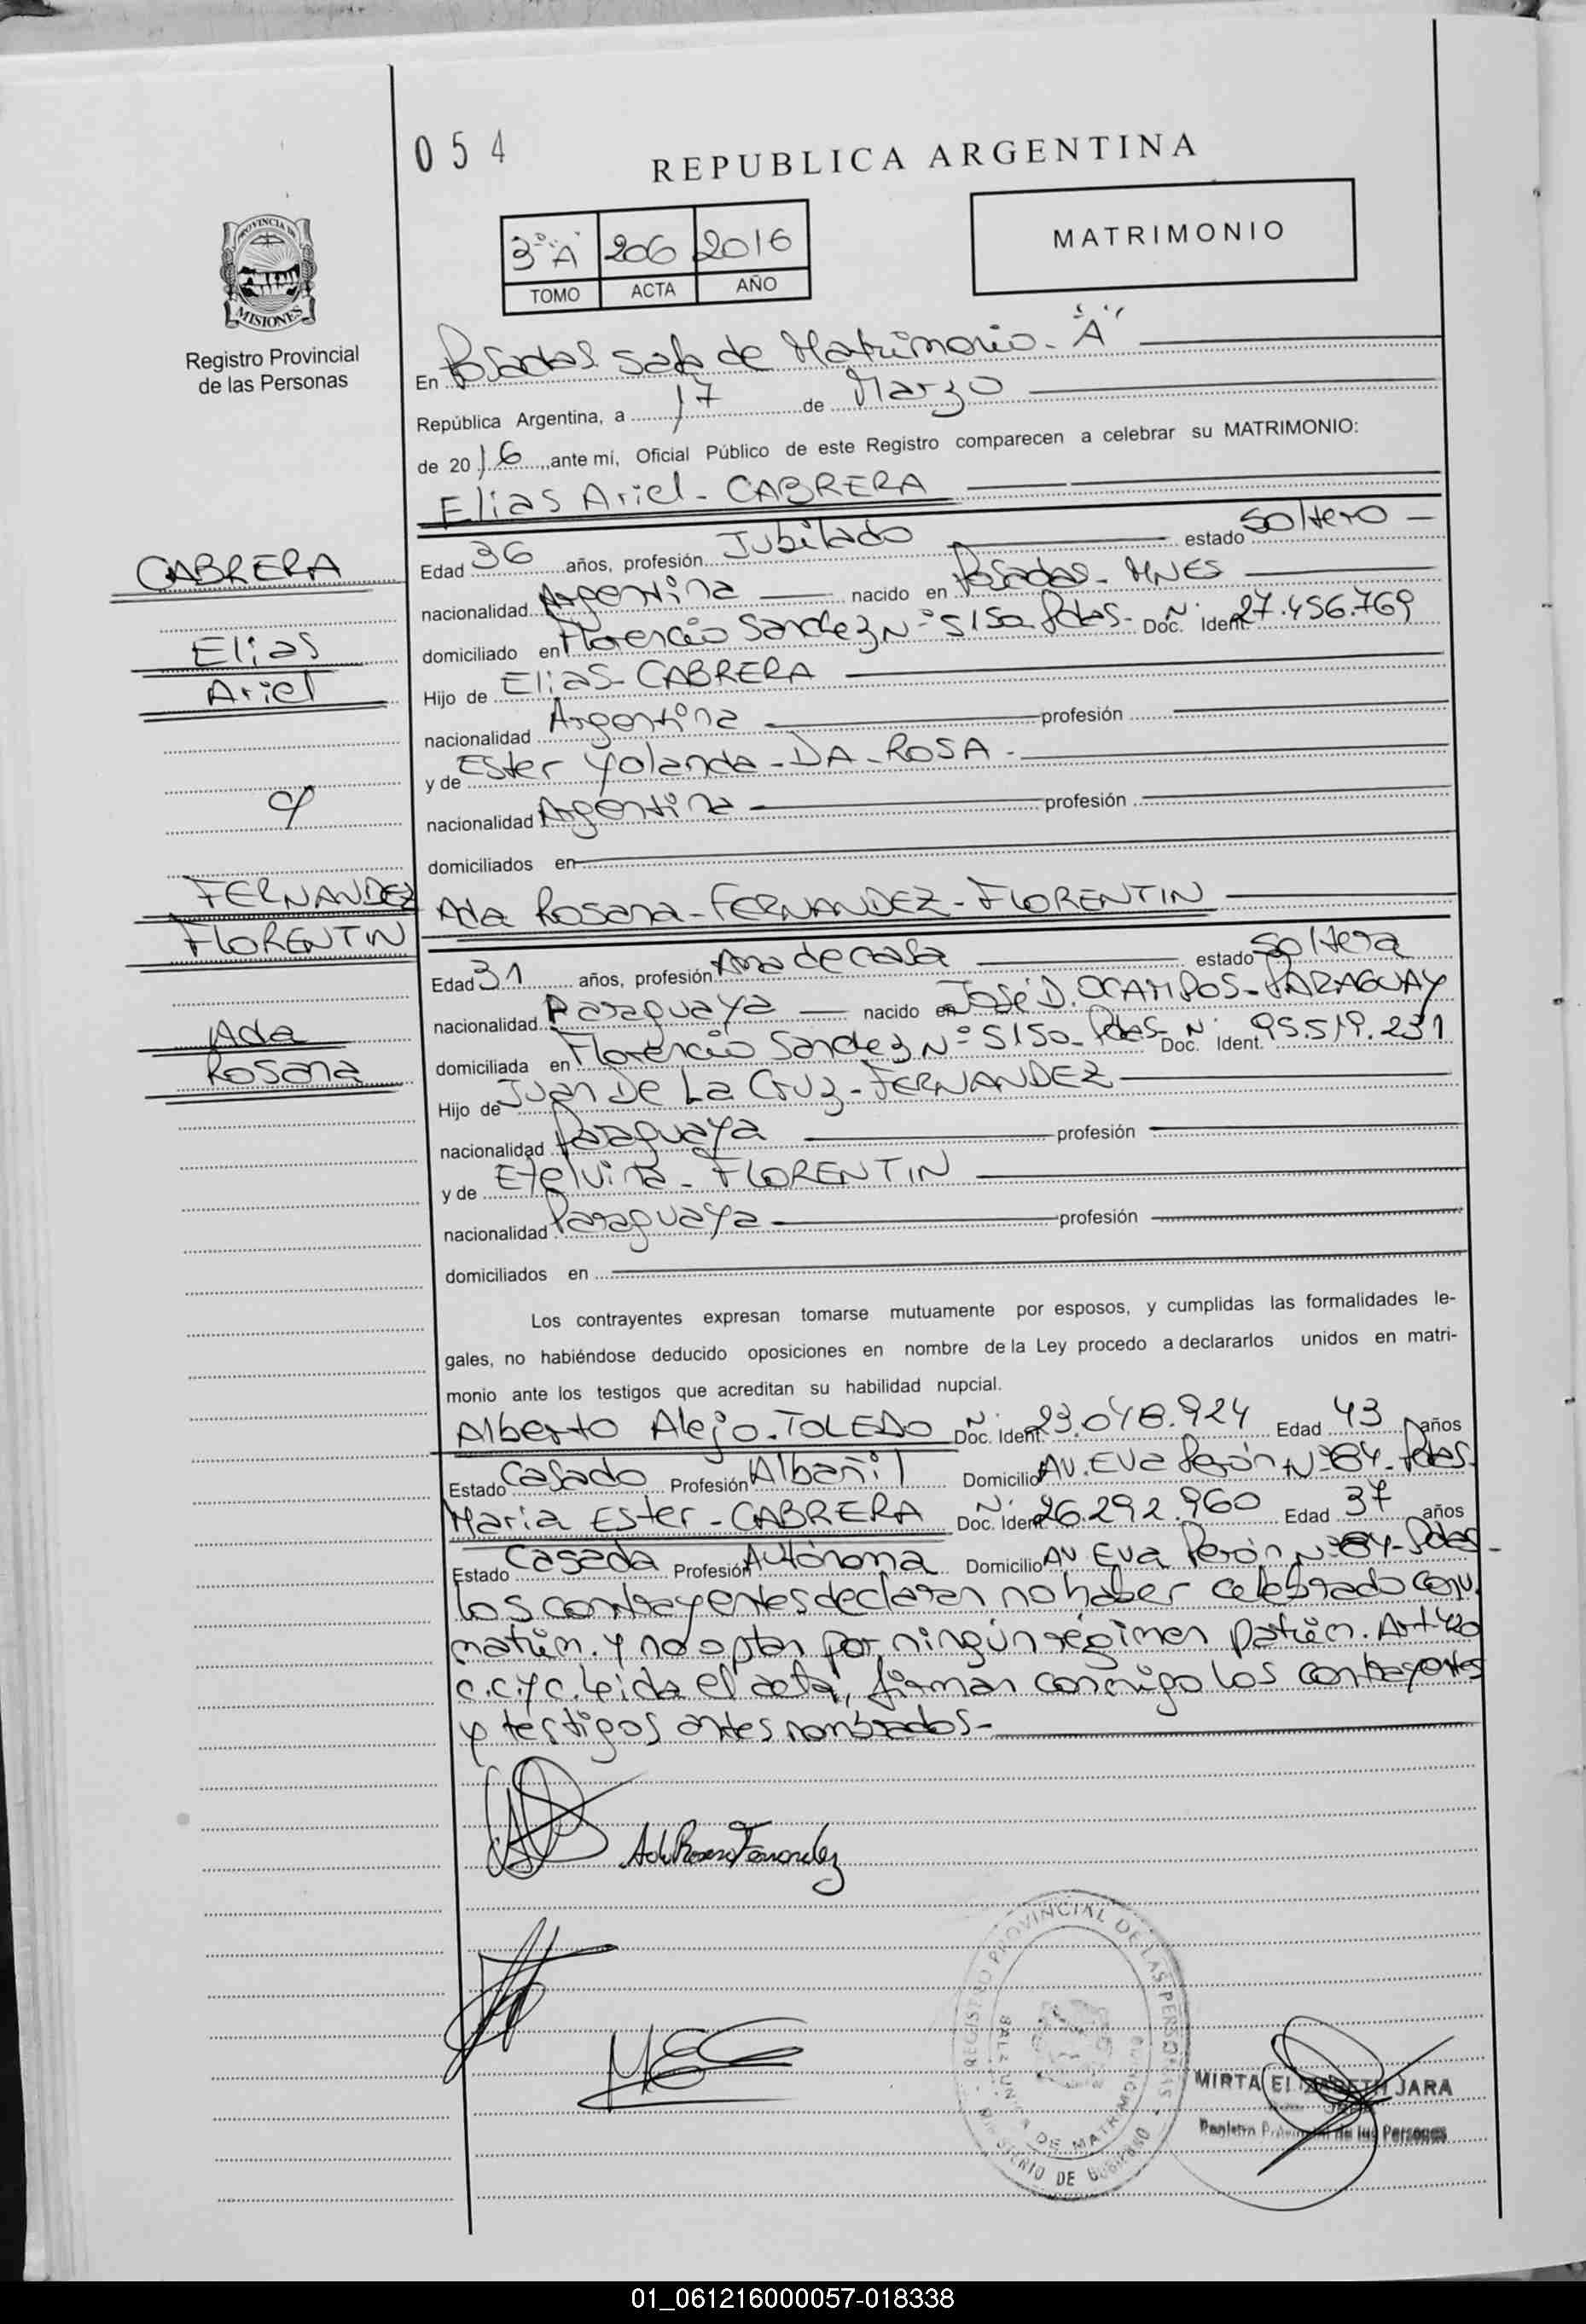 054
REPUBLICA ARGENTINA
PROVINCIA DE
MISIONES
Registro Provincial
de las Personas
3º "A" 206 2016
TOMO ACTA AÑO
MATRIMONIO
En Posadas Sala de Matrimonio - "A"
República Argentina, a 17 de Marzo
de 2016, ante mí, Oficial Público de este Registro comparecen a celebrar su MATRIMONIO:
Elias Ariel - CABRERA
CABRERA
Elias
Ariel
Edad 36 años, profesión Jubilado estado Soltero -
nacionalidad Argentina nacido en Posadas - MNES
domiciliado en Florencio Sanchez Nº 5150 Pdas - Nº Doc. Ident. 27.456.769
Hijo de Elias - CABRERA
nacionalidad Argentina profesión
y de Ester Yolanda - DA - ROSA -
nacionalidad Argentina profesión
domiciliados en
c/
FERNANDEZ
FLORENTIN
Ada
Rosana
Ada Rosana - FERNANDEZ - FLORENTIN
Edad 31 años, profesión Ama de casa estado Soltera
nacionalidad Paraguaya nacido en José D. OCAMPOS - PARAGUAY
domiciliada en Florencio Sanchez Nº 5150 - Pdas - Nº Doc. Ident. 95.519.231
Hijo de Juan De La Cruz - FERNANDEZ
nacionalidad Paraguaya profesión
y de Etelvina - FLORENTIN
nacionalidad Paraguaya profesión
domiciliados en
Los contrayentes expresan tomarse mutuamente por esposos, y cumplidas las formalidades le-
gales, no habiéndose deducido oposiciones en nombre de la Ley procedo a declararlos unidos en matri-
monio ante los testigos que acreditan su habilidad nupcial.
Alberto Alejo - TOLEDO Nº Doc. Ident. 23.048.924 Edad 43 años
Estado Casado Profesión Albañil Domicilio AV. Eva Perón Nº 84 - Pdas -
Maria Ester - CABRERA Nº Doc. Ident. 26.292.960 Edad 37 años
Estado Casada Profesión Autónoma Domicilio AV Eva Perón Nº 84 - Pdas -
Los contrayentes declaran no haber celebrado conv.
matrim. y no optan por ningún régimen patrim. Art 420
C.C.y C. Leida el acta, firman conmigo los contrayentes
y testigos antes nombrados -
Ada Rosana Fernandez
MEC
REGISTRO PROVINCIAL DE LAS PERSONAS
SALA UNICA DE MATRIMONIO
MINISTERIO DE GOBIERNO
MIRTA ELIZABETH JARA
Registro Provincial de las Personas
01_061216000057-018338